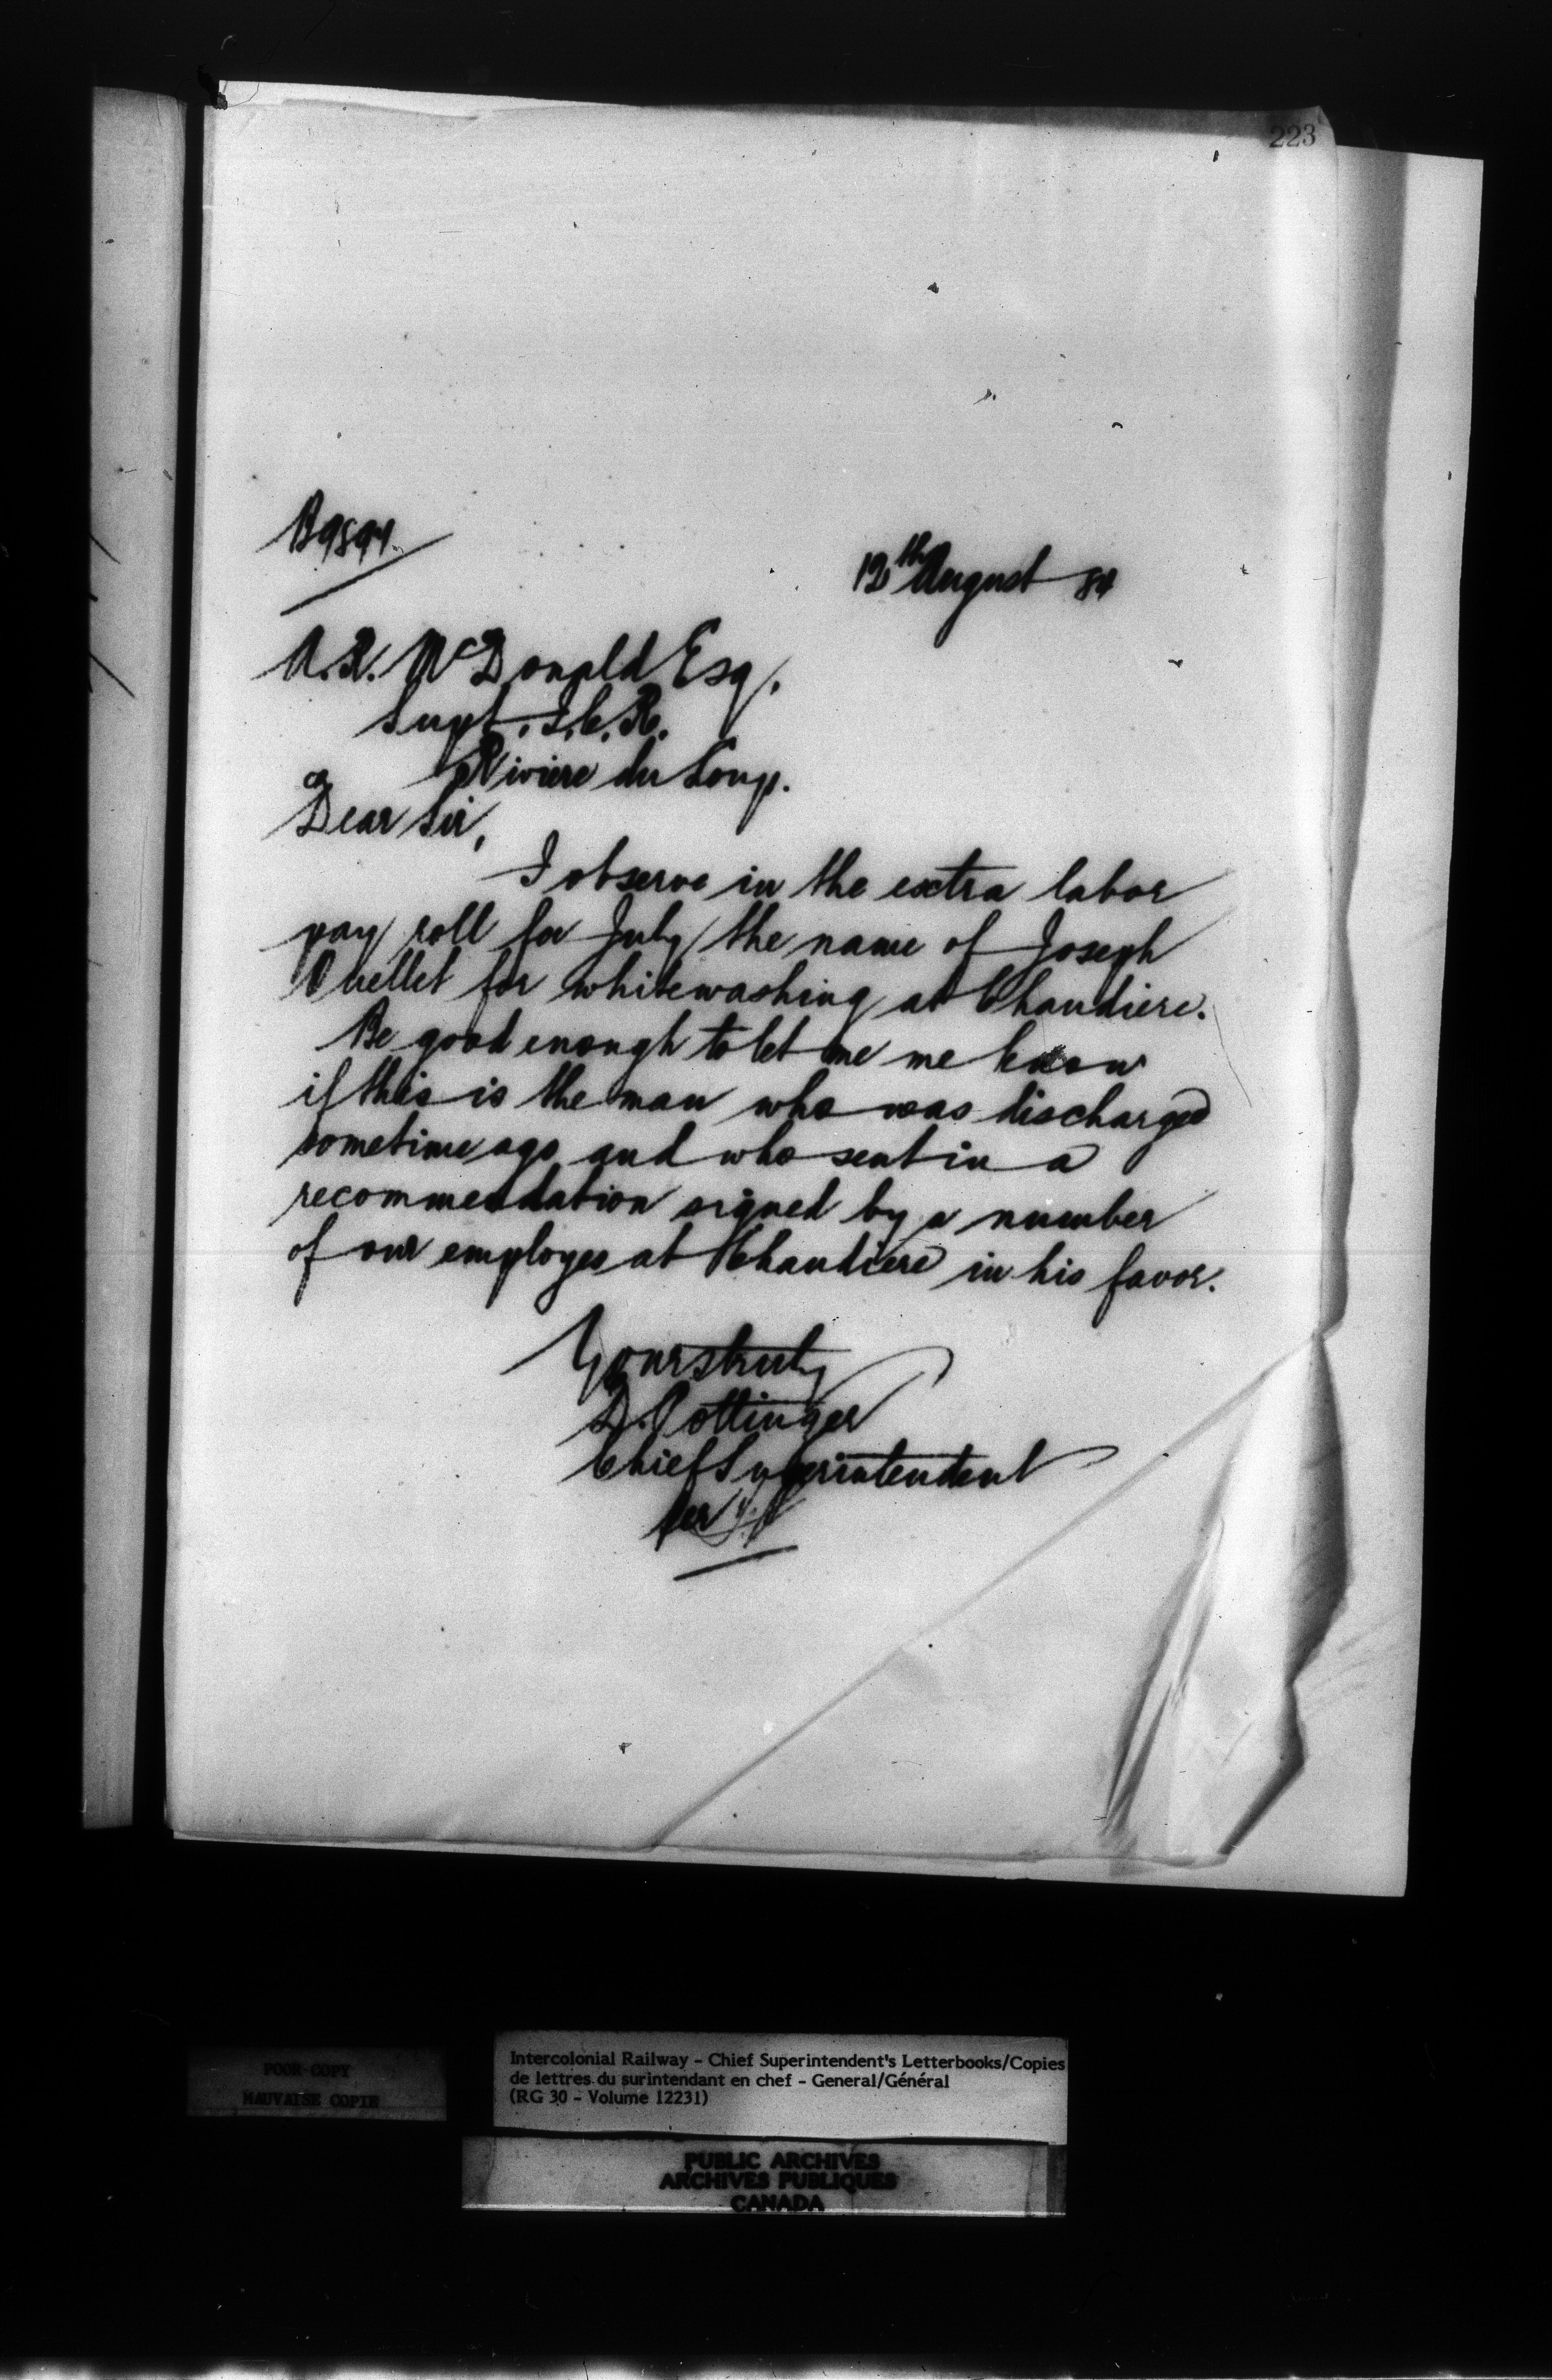 223
B9894.
12th August 84
A. R. McDonald Esq.
Supt. I.C.R.
Riviere du Loup.
Dear Sir,
I observe in the extra labor
pay roll for July the name of Joseph
Ouellet for whitewashing at Chaudiere.
Be good enough to let me me know
if this is the man who was discharged
sometime ago and who sent in a
recommendation signed by a number
of our employes at Chaudiere in his favor.
Yours truly
D. Pottinger
Chief Superintendent
Per
POOR COPY
MAUVAISE COPIE
Intercolonial Railway - Chief Superintendent's Letterbooks/Copies
de lettres du surintendant en chef - General/Général
(RG 30 - Volume 12231)
PUBLIC ARCHIVES
ARCHIVES PUBLIQUES
CANADA